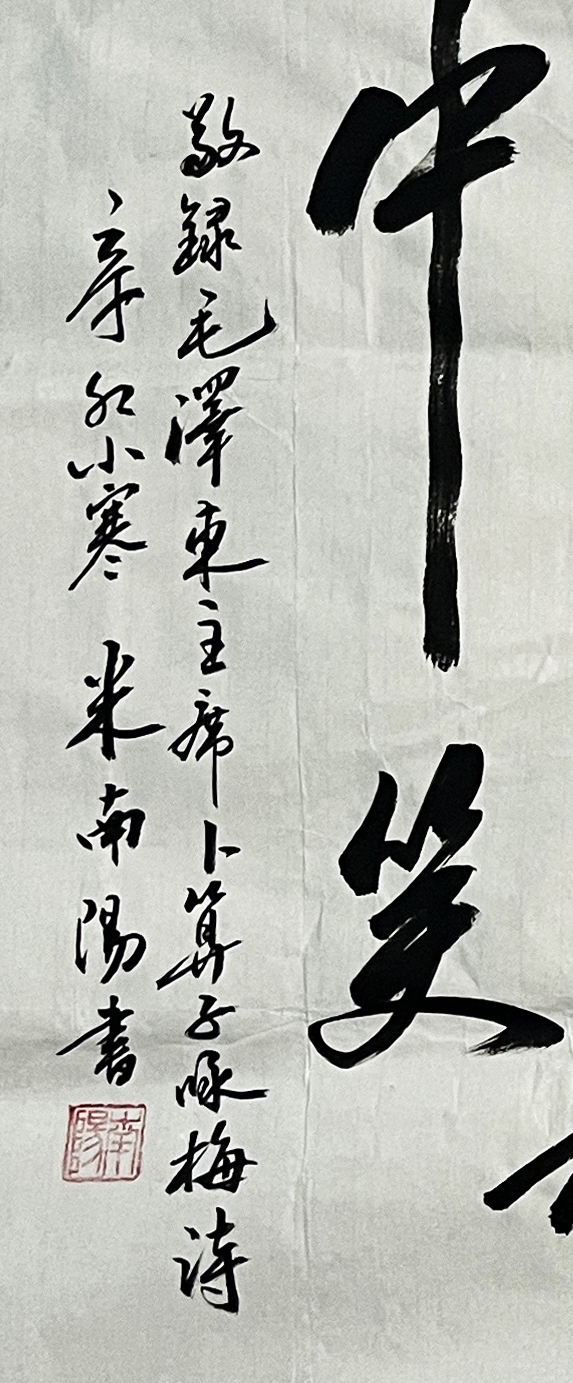 中笑
敬録毛澤東主席卜算子咏梅詩
辛卯小寒 米南陽書
南陽